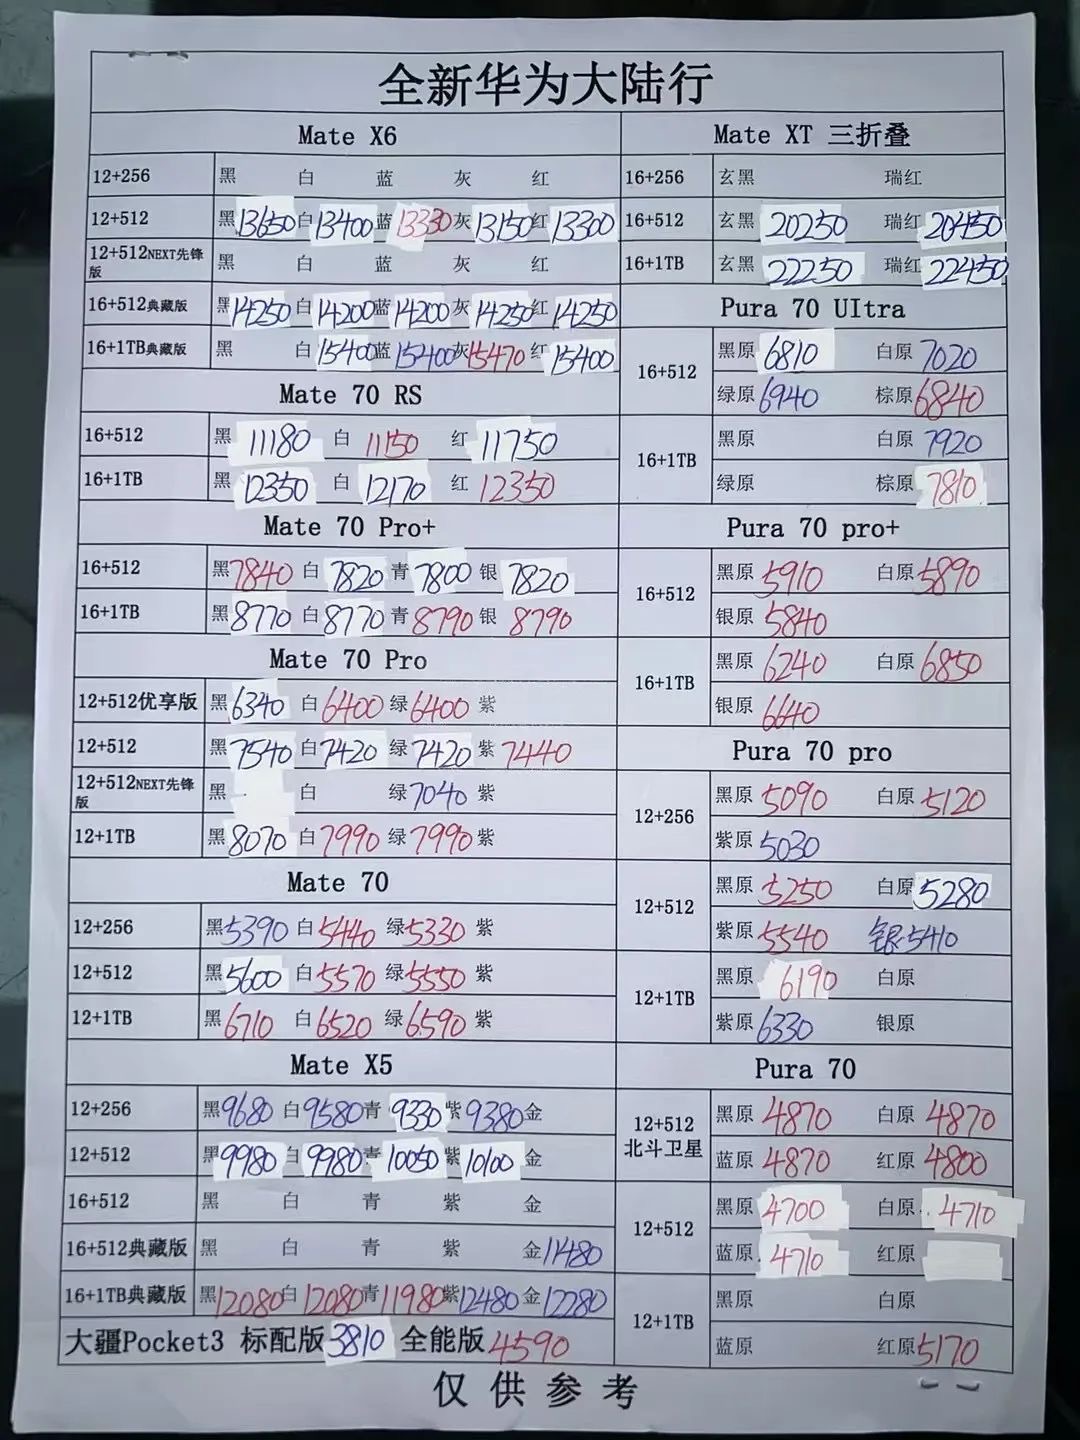 全新华为大陆行
Mate X6
12+256 黑 白 蓝 灰 红
12+512 黑13650 白13400 蓝13330 灰13150 红13300
12+512NEXT先锋版 黑 白 蓝 灰 红
16+512典藏版 黑14250 白14200 蓝14200 灰14250 红14250
16+1TB典藏版 黑 白15400 蓝15400 灰15470 红15400
Mate 70 RS
16+512 黑11180 白11150 红11750
16+1TB 黑12350 白12170 红12350
Mate 70 Pro+
16+512 黑7840 白7820 青7800 银7820
16+1TB 黑8770 白8770 青8790 银8790
Mate 70 Pro
12+512优享版 黑6340 白6400 绿6400 紫
12+512 黑7540 白7420 绿7420 紫7440
12+512NEXT先锋版 黑 白 绿7040 紫
12+1TB 黑8070 白7990 绿7990 紫
Mate 70
12+256 黑5390 白5440 绿5330 紫
12+512 黑5600 白5570 绿5550 紫
12+1TB 黑6710 白6520 绿6590 紫
Mate X5
12+256 黑9680 白9580 青9330 紫9380 金
12+512 黑9980 白9980 青10050 紫10100 金
16+512 黑 白 青 紫 金
16+512典藏版 黑 白 青 紫 金11480
16+1TB典藏版 黑12080 白12080 青11980 紫12480 金12280
大疆Pocket3 标配版3810 全能版4590
Mate XT 三折叠
16+256 玄黑 瑞红
16+512 玄黑20250 瑞红20450
16+1TB 玄黑22250 瑞红22450
Pura 70 UItra
16+512 黑原6810 白原7020
绿原6940 棕原6840
16+1TB 黑原 白原7920
绿原 棕原7810
Pura 70 pro+
16+512 黑原5910 白原5890
银原5840
16+1TB 黑原6240 白原6850
银原6640
Pura 70 pro
12+256 黑原5090 白原5120
紫原5030
12+512 黑原5250 白原5280
紫原5540 银5410
12+1TB 黑原6190 白原
紫原6330 银原
Pura 70
12+512北斗卫星 黑原4870 白原4870
蓝原4870 红原4800
12+512 黑原4700 白原4710
蓝原4710 红原
12+1TB 黑原 白原
蓝原 红原5170
仅供参考